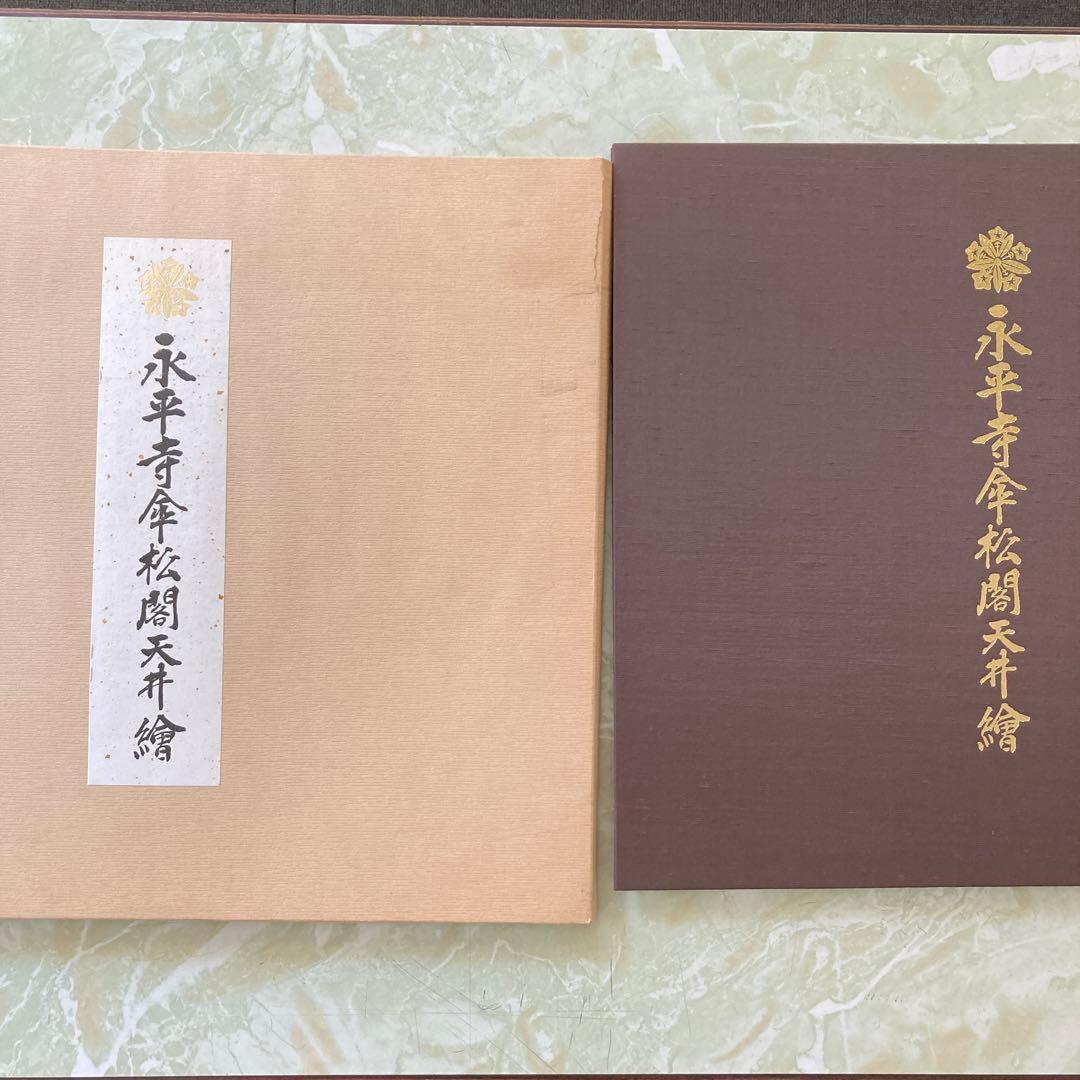 永平寺傘松閣天井繪
永平寺傘松閣天井繪